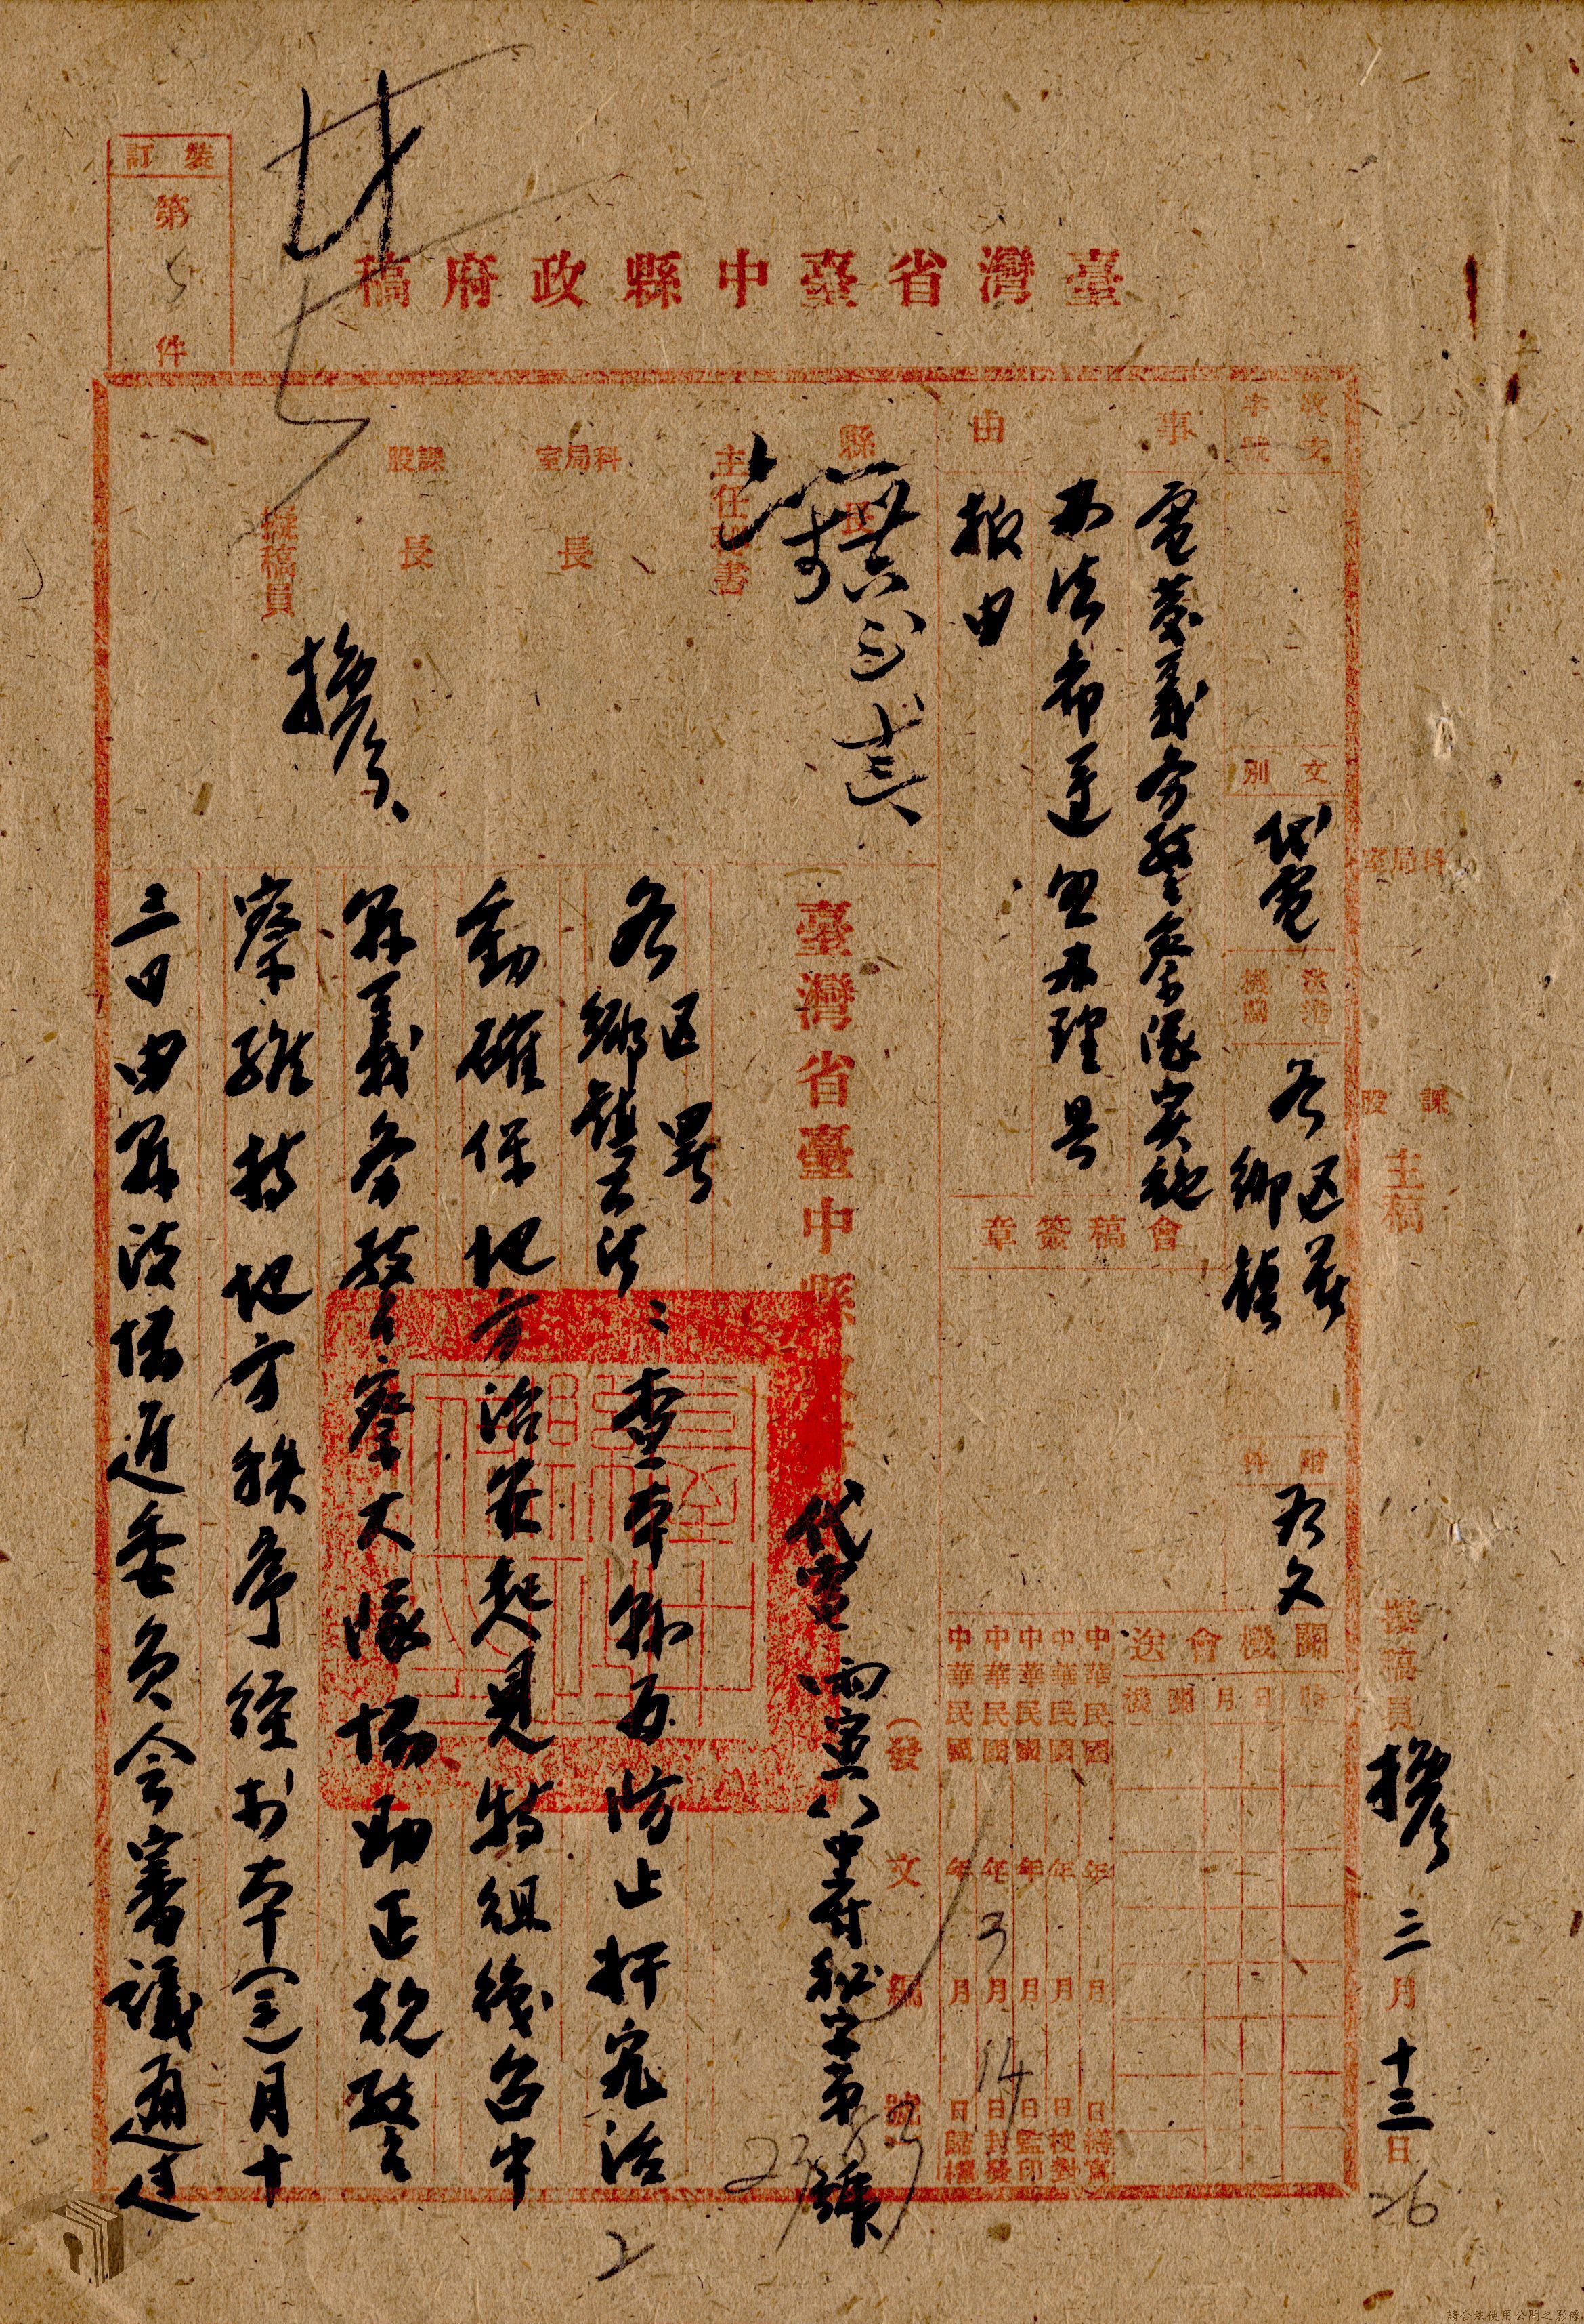 裝訂
第
5
件
臺灣省臺中縣政府稿
收文
字號
事由
電發義務警察隊实施
办法希遵照办理具
報由
文別
代電
送達機關
各区署
鄉鎮
附件
办文
縣長
主任秘書
科局室長
課股長
擬稿員
會稿簽章
會送機關
機關
月日
時
中華民國 年 月 日繕寫
中華民國 年 月 日校對
中華民國 年 月 日監印
中華民國 年3月14日封發
中華民國 年 月 日歸檔
科局室
課股
主稿
擬稿員
三月十三日
26
臺灣省臺中縣
代電
(發文
號
寅
中府秘字第
號
各区署
鄉鎮公所
查本縣為防止奸宄活
動確保地方治安起見特組織台中
縣義務警察大隊協助正規警
察維持地方秩序經於本(三)月十
三日由縣政協進委員会審議通過